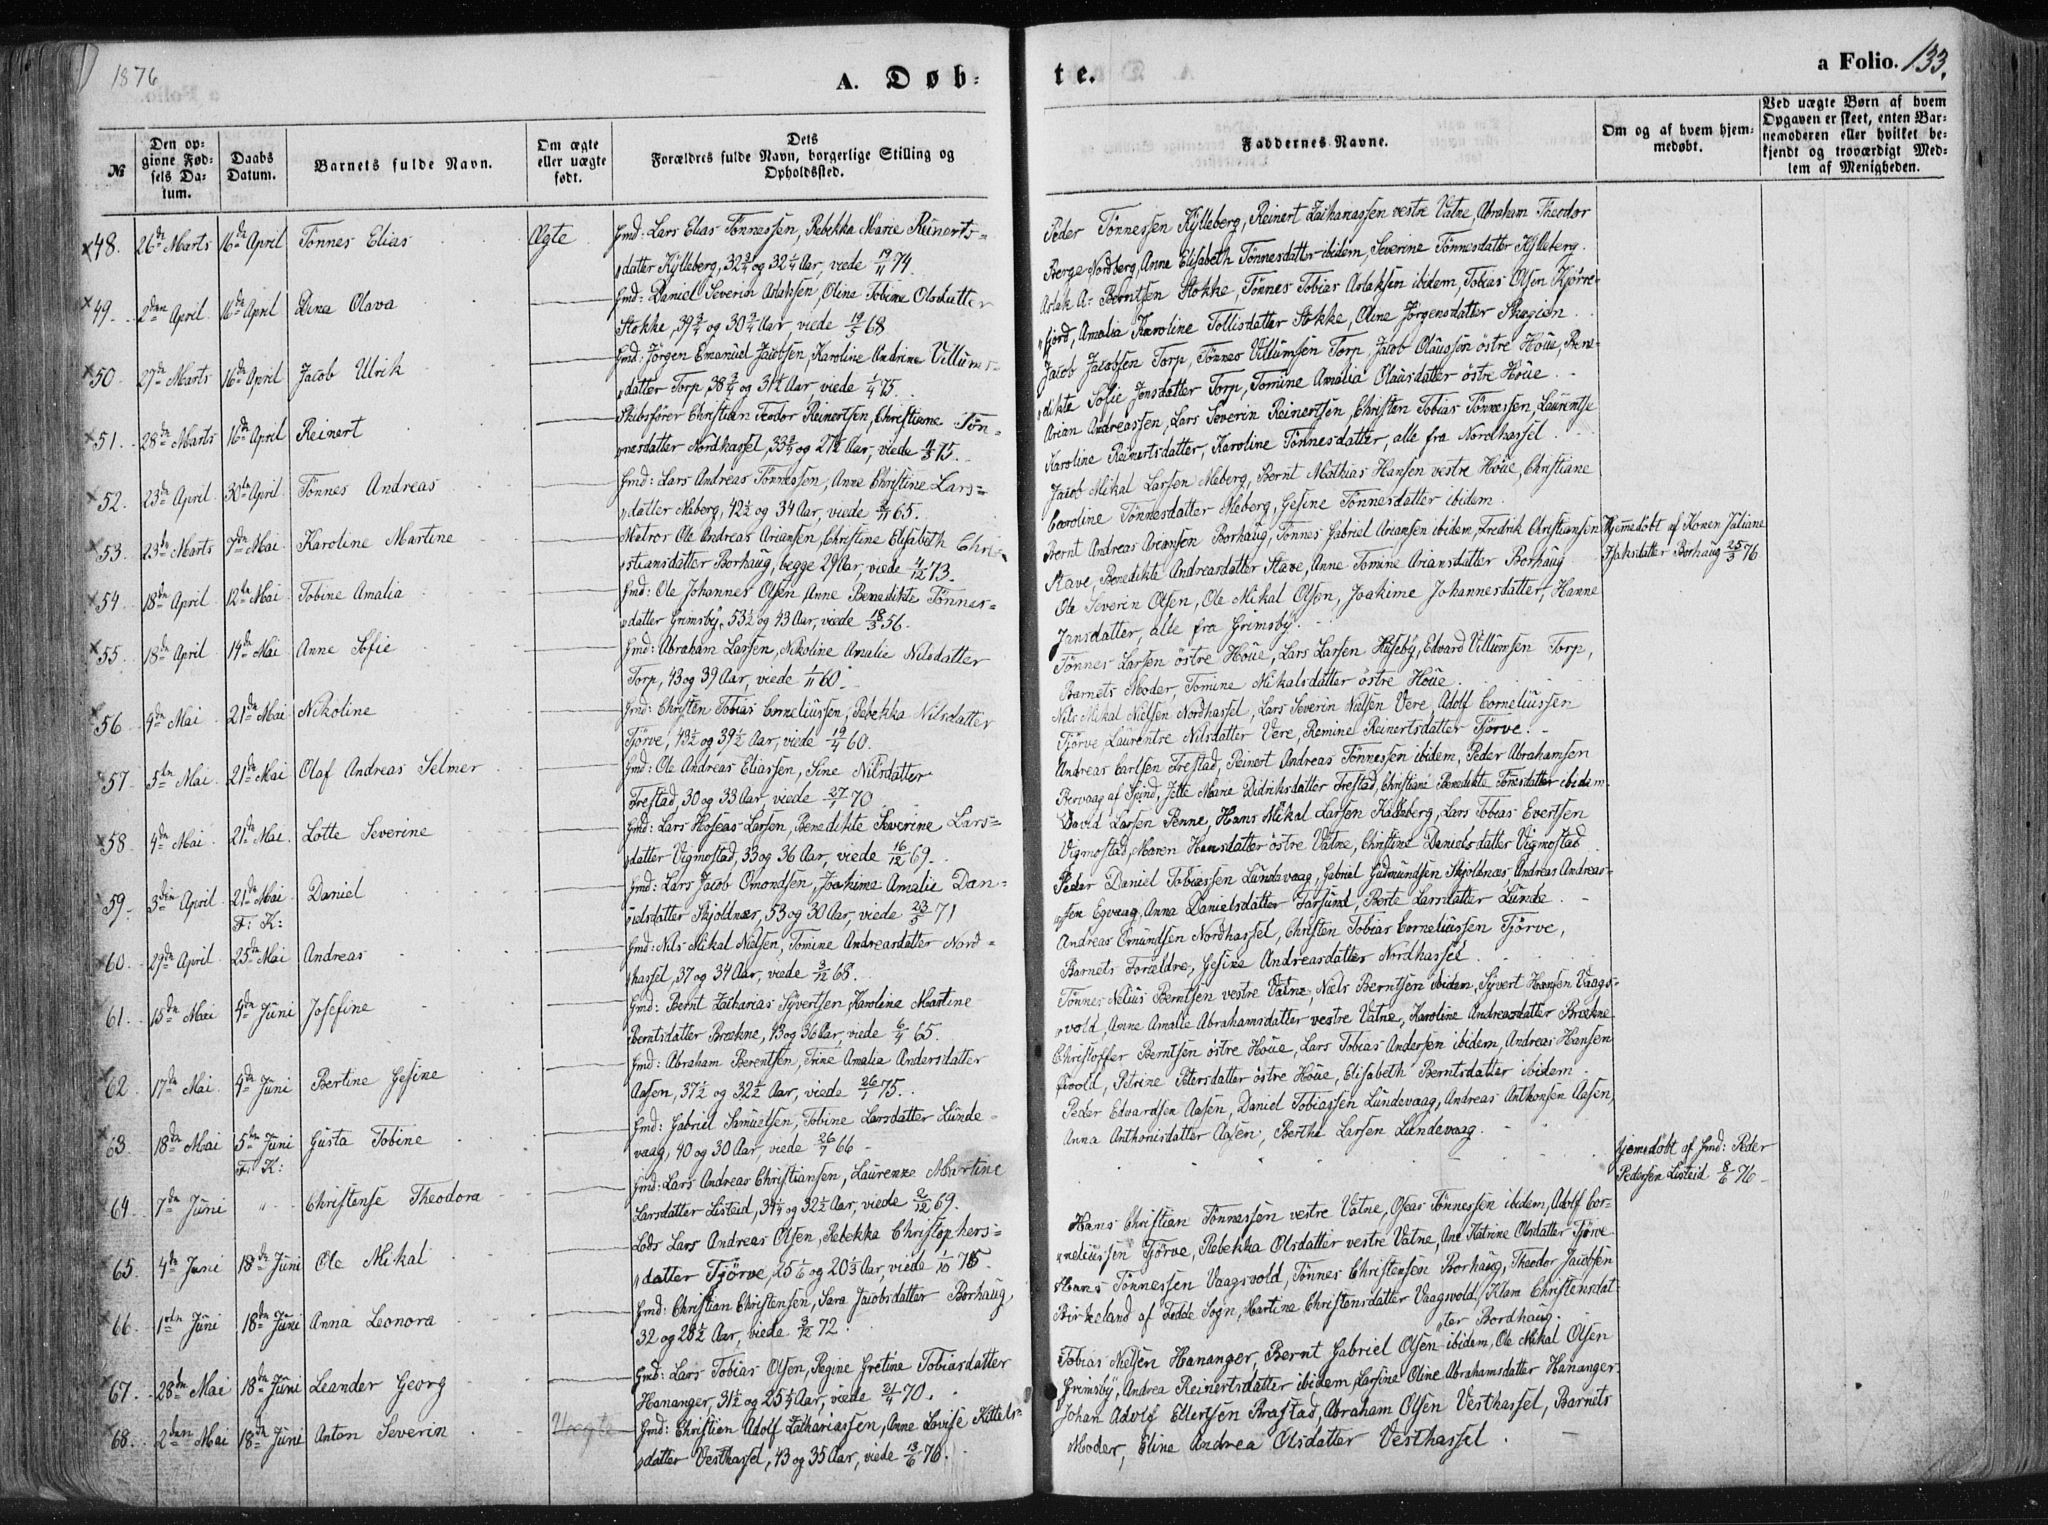 1876
A. Døb-
te.
a Folio. 133.
№
Den op-
givne Fød-
sels Da-
tum.
Daabs
Datum.
Barnets fulde Navn.
Om ægte
eller uægte
født.
Dets
Forældres fulde Navn, borgerlige Stilling og
Opholdssted.
Faddernes Navne.
Om og af hvem hjem-
medøbt.
Ved uægte Børn af hvem
Opgaven er skeet, enten Bar-
nemoderen eller hvilket be-
kjendt og troværdigt Med-
lem af Menigheden.
48. 26de Marts 16de April Tönnes Elias Ægte Gmd: Lars Elias Tönnessen, Rebekka Marie Reinerts-
datter Kylleberg, 32 3/4 og 32 1/4 Aar, viede 19/11 74.
Peder Tönnessen Kylleberg, Reinert Zachariassen vestre Vatne, Abraham Theodor
Berge Nordberg, Anne Elisabeth Tönnesdatter ibidem, Severine Tönnesdatter Kylleberg.
49. 2den April 16de April Dina Olava Gmd: Daniel Severin Aslaksen, Olina Tobine Olsdatter
Stokke, 39 3/4 og 30 3/4 Aar, viede 19/5 68
Aslak A. Berntsen Stokke, Tönnes Tobias Aslaksen ibidem, Tobias Olsen Kjörre-
fjord, Amalia Karoline Tollisdatter Stokke, Oline Jörgensdatter Skagien.
50. 27de Marts 16de April Jacob Ulrik Gmd: Jörgen Emanuel Jacobsen, Karoline Andrine Villums-
datter Torp, 38 3/4 og 31 1/2 Aar, viede 1/4 75.
Jacob Jacobsen Torp, Tönnes Villumsen Torp, Jacob Olaussen östre Höue, Bene-
dikte Sofie Jonsdatter Torp, Tomine Amalia Olausdatter östre Höue.
51. 28de Marts 16de April Reinert Skibsförer Christian Teodor Reinertsen, Christiane Tön-
nesdatter Nordhassel, 33 3/4 og 27 1/2 Aar, viede 4/3 75.
Arian Andreassen, Lars Severin Reinertsen, Christen Tobias Tönnessen, Laurentse
Karoline Reinertsdatter, Karoline Tönnesdatter, alle fra Nordhassel.
52. 23de April 30te April Tönnes Andreas Gmd: Lars Andreas Tönnessen, Anne Christine Lars-
datter Meberg, 42 1/2 og 34 Aar, viede 2/11 65.
Jacob Mikal Larsen Meberg, Bernt Mathias Hansen vestre Höue, Christiane
Caroline Tönnesdatter Meberg, Gesine Tönnesdatter ibidem.
53. 23de Marts 7de Mai Karoline Martine Matros Ole Andreas Ariansen, Christine Elisabeth Chri-
stiansdatter Borhaug, begge 29 Aar, viede 4/12 73.
Bernt Andreas Ariansen Borhaug, Tönnes Gabriel Ariansen ibidem, Fredrik Christiansen
Stave, Benedikte Andreasdatter Stave, Anne Tomine Ariansdatter Borhaug
Hjemedöbt af Konen Juliane
Isaksdatter Borhaug 25/3 76
54. 18de April 12te Mai Tobine Amalia Gmd: Ole Johannes Olsen, Anne Benedikte Tönnes-
datter Grimsby, 53 1/2 og 43 Aar, viede 18/3 56.
Ole Severin Olsen, Ole Mikal Olsen, Joakime Johannesdatter, Hanne
Jansdatter, alle fra Grimsby.
55. 18de April 14de Mai Anne Sofie Gmd: Abraham Larsen, Nikoline Amalie Nilsdatter
Torp, 43 og 39 Aar, viede 1/11 60.
Tönnes Larsen östre Höue, Lars Larsen Huseby, Edvard Villumsen Torp,
Barnets Moder, Tomine Mikalsdatter östre Höue.
56. 9de Mai 21de Mai Nikoline Gmd: Christen Tobias Corneliussen, Rebekka Nilsdatter
Tjörve, 43 1/2 og 39 1/2 Aar, viede 19/4 60.
Nils Mikal Nielsen Nordhassel, Lars Severin Nielsen Vere, Adolf Corneliussen
Tjörve Laurentse Nilsdatter Vere, Remine Reinertsdatter Tjörve.
57. 5te Mai 21de Mai Olaf Andreas Selmer Gmd: Ole Andreas Eliassen, Sine Nilsdatter
Frestad, 30 og 33 Aar, viede 27/1 70
Andreas Carlsen Frestad, Reinert Andreas Tönnessen ibidem, Peder Abrahamsen
Bervaag af Spind, Jette Marie Didriksdatter Frestad, Christiane Benedikte Tönesdatter ibidem.
58. 4de Mai 21de Mai Lotte Severine Gmd: Lars Hoseas Larsen, Benedikte Severine Lars-
datter Vigmostad, 33 og 36 Aar, viede 16/12 69.
David Larsen Penne, Hans Mikal Larsen Kalleberg, Lars Tobias Evertsen
Vigmostad, Maren Hansdatter östre Vatne, Christine Danielsdatter Vigmostad
59. 3die April 21de Mai F: K: Daniel Gmd: Lars Jacob Omondsen, Joakime Amalie Dan-
ielsdatter Skjoldnæs, 53 og 30 Aar, viede 23/5 71
Peder Daniel Tobiassen Lundevaag, Gabriel Gudmundsen Skjoldnæs, Andreas Andreas-
sen Egvaag, Anna Danielsdatter Farsund, Berte Larsdatter Lunde.
60. 29de April 25de Mai Andreas Gmd: Nils Mikal Nielsen, Tomine Andreasdatter Nord-
hassel, 37 og 34 Aar, viede 3/12 68.
Andreas Omundsen Nordhassel, Christen Tobias Corneliussen Tjörve,
Barnets Forældre, Gesine Andreasdatter Nordhassel.
61. 15de Mai 4de Juni Josefine Gmd: Bernt Zacharias Syvertsen, Karoline Martine
Berntsdatter Brækne, 43 og 36 Aar, viede 6/4 65.
Tönnes Nelius Berntsen vestre Vatne, Niels Berntsen ibidem, Syvert Hansen Vaags-
vold, Anne Amalie Abrahamsdatter vestre Vatne, Karoline Andreasdatter Brækne
62. 17de Mai 4de Juni Bertine Gesine Gmd: Abraham Berentsen, Trine Amalia Andersdatter
Aasen, 37 1/2 og 32 1/2 Aar, viede 26/1 75.
Christoffer Berntsen östre Höue, Lars Tobias Andersen ibidem, Andreas Hansen
Qvold, Petrine Petersdatter östre Höue, Elisabeth Berntsdatter ibidem.
63. 18de Mai 5te Juni F: K: Gusta Tobine Gmd: Gabriel Samuelsen, Tobine Larsdatter Lunde-
vaag, 40 og 30 Aar, viede 26/7 66
Peder Edvardsen Aasen, Daniel Tobiassen Lundevaag, Andreas Anthonsen Aasen,
Anna Anthonisdatter Aasen, Berthe Larsen Lundevaag.
64. 7de Juni " Christense Theodora Gmd: Lars Andreas Christiansen, Laurenze Martine
Larsdatter Listeid, 34 1/4 og 32 1/2 Aar, viede 2/12 69.
Hjemedöbt af Gmd: Peder
Pedersen Listeid 8/6 76
65. 4de Juni 18de Juni Ole Mikal Lods Lars Andreas Olsen, Rebekka Christophers-
datter Tjörve, 25 1/6 og 20 1/3 Aar, viede 1/10 75.
Hans Christian Tönnessen vestre Vatne, Oseas Tönnessen ibidem, Adolf Cor-
neliussen Tjörve, Rebekka Olsdatter vestre Vatne, Ane Katrine Olsdatter Tjörve
66. 1ste Juni 18de Juni Anna Leonora Gmd: Christian Christensen, Sara Jacobsdatter Borhaug,
32 og 28 1/2 Aar, viede 3/12 72.
Hans Tönnessen Vaagsvold, Tönnes Christensen Borhaug, Theodor Jacobsen
Birkeland af Fedde Sogn, Martine Christensdatter Vaagsvold, Klam Christensdat-
ter Bordhaug.
67. 28de Mai 18de Juni Leander Georg Gmd: Lars Tobias Olsen, Regine Gretine Tobiasdatter
Hananger, 31 1/2 og 25 1/4 Aar, viede 2/4 70.
Tobias Nielsen Hananger, Bernt Gabriel Olsen ibidem, Ole Mikal Olsen
Grimsby, Andrea Reinertsdatter ibidem, Larsine Oline Abrahamsdatter Hananger.
68. 2den Mai 18de Juni Anton Severin Uægte Gmd: Christian Adolf Zachariassen, Anne Lovise Kittels-
datter Vesthassel, 43 og 35 Aar, viede 13/6 76.
Johan Adolf Ellertsen Brastad, Abraham Olsen Vesthassel, Barnets
Moder, Eline Andrea Olsdatter Vesthassel.